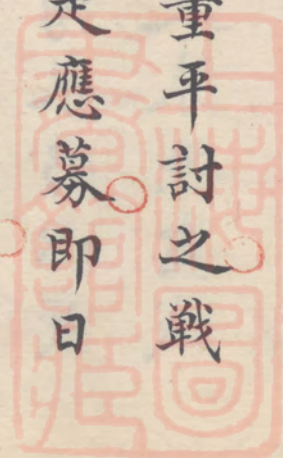 重平討之戰
足應募即日